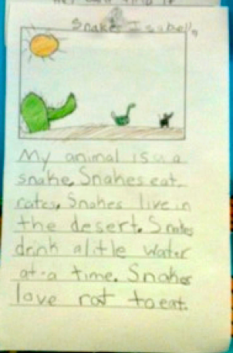 Snakes Isabella
My animal is a
snake. Snakes eat
rates. Snakes live in
the desert. Snakes
drink a litle water
at a time. Snakes
love rat to eat.